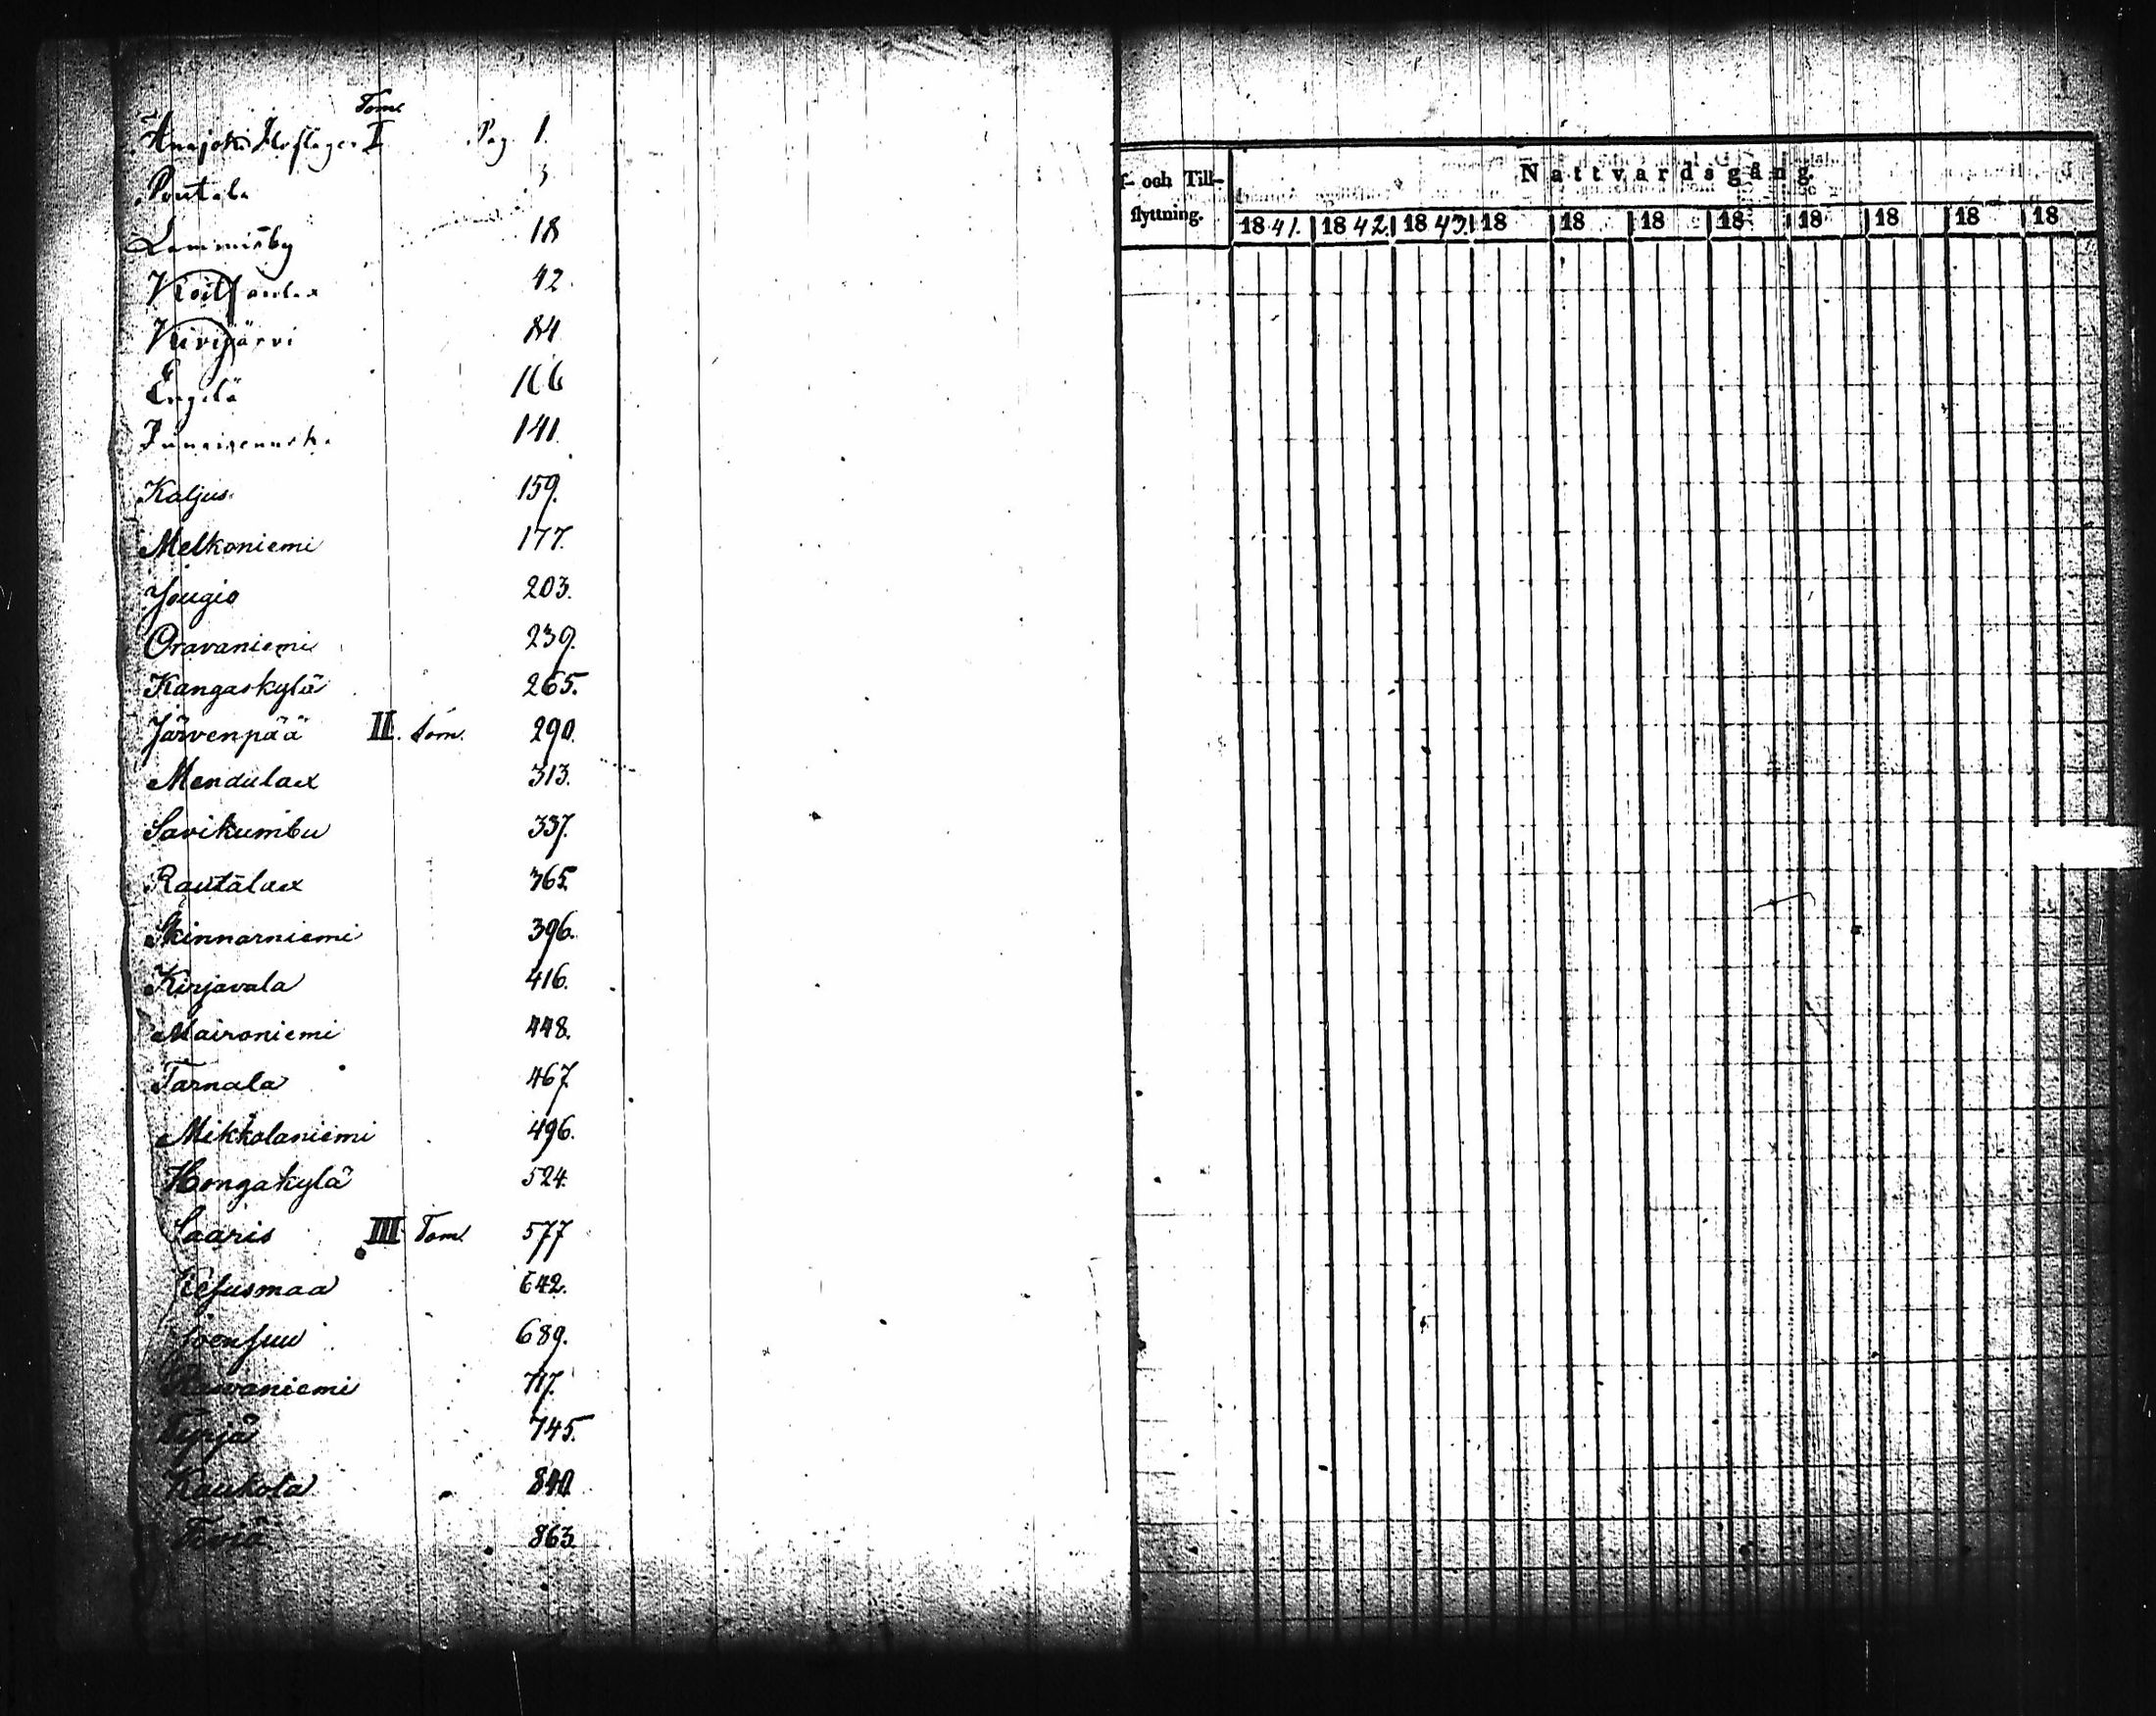 Tom.
Anajoki Hoflager I Pag. 1.
Poutala 3
Lammisby 18
Koitsanlax 42
Kivijärvi 84
Engilä 106
141.
Kaljus 159.
Melkoniemi 177.
Jougio 203.
Oravaniemi 239.
Kangaskylä 265.
Järvenpää II. Tom. 290.
Mendulax 313.
Savikumbu 337.
Rautalax 365.
Skinnarniemi 396.
Kirjavala 416.
Maironiemi 448.
Tarnala 467
Mikkolaniemi 496.
Hongakylä 524.
Saaris III Tom. 577
Kesusmaa 642.
Joensuu 689.
Rauvaniemi 717.
Tyrjä 745.
Kaukola 840
Tervä 863.
f- och Till-
flyttning.
Nattvardsgång.
1841. 1842. 1843. 18 18 18 18 18 18 18 18